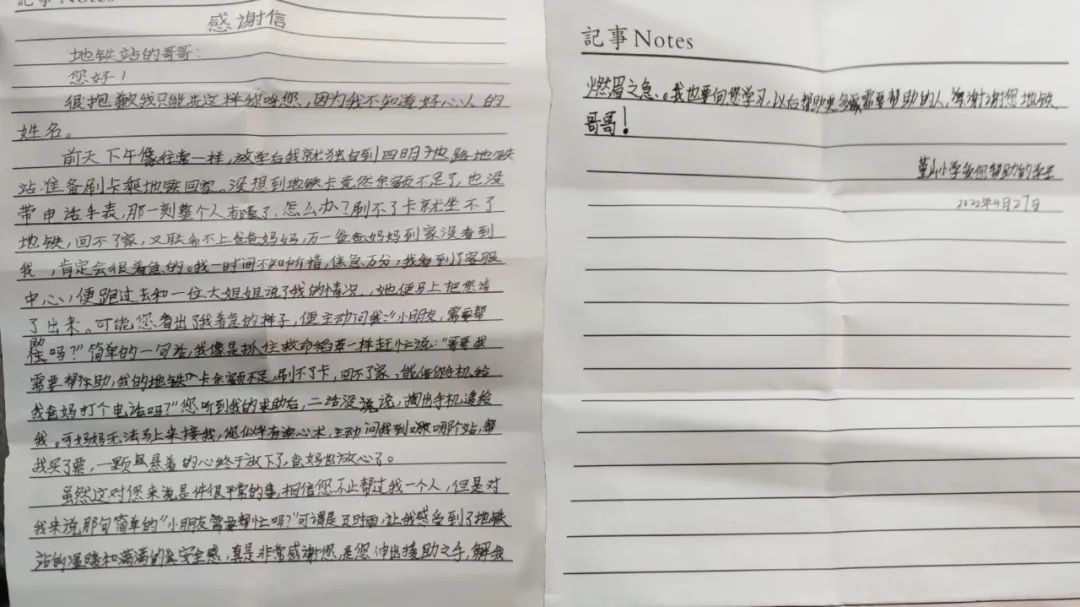 記事Notes
感谢信
地铁站的哥哥：
您好！
很抱歉我只能先这样称呼您，因为我不知道好心人的
姓名。
前天下午像往常一样，放学后我就独自到四明路地铁
站准备刷卡乘地铁回家。没想到地铁卡竟然余额不足了，也没
带电话手表，那一刻整个人都了，怎么办？刷不了卡就坐不了
地铁，回不了家，又联系不上爸爸妈妈，万一爸爸妈妈到家没看到
我，肯定会很着急的。我一时间不知所措，焦急万分，我看到了客服
中心，便跑过去和一位大姐姐说了我的情况，她便马上把您请
了出来。可能您看出了我着急的样子，便主动问我：“小朋友，需要帮
吗？”简单的一句话，我像是抓住救命稻草一样赶忙说：“哥哥我
需要帮助，我的地铁卡余额不足，刷不了卡，回不了家，能借你手机给
我爸妈打个电话吗？”您听到我的求助后，二话没说，掏出手机递给
我。可妈妈无法马上来接我，您似乎有读心术，主动问我到哪个站，帮
我买了票，一颗悬着的心终于放下了，爸妈也放心了。
虽然这对您来说是件很平常的事，相信您不止帮过我一个人，但是对
我来说，那句简单的“小朋友需要帮忙吗？”可谓是及时雨，让我感受到了地铁
站的温暖和满满的安全感，真是非常感谢您，是您伸出援助之手，解我
記事Notes
燃眉之急。我也要向您学习，以后帮助更多需要帮助的人，谢谢您地铁
哥哥！
董山小学受您帮助的学生
2022年4月27日